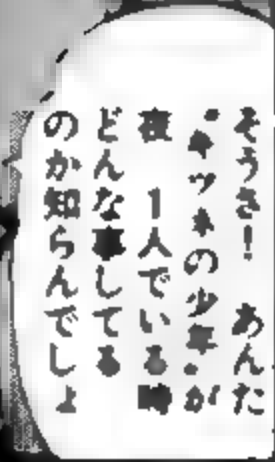 そうさ！　あんた
“キツネの少年”が
夜　１人でいる時
どんな事してる
のか知らんでしょ